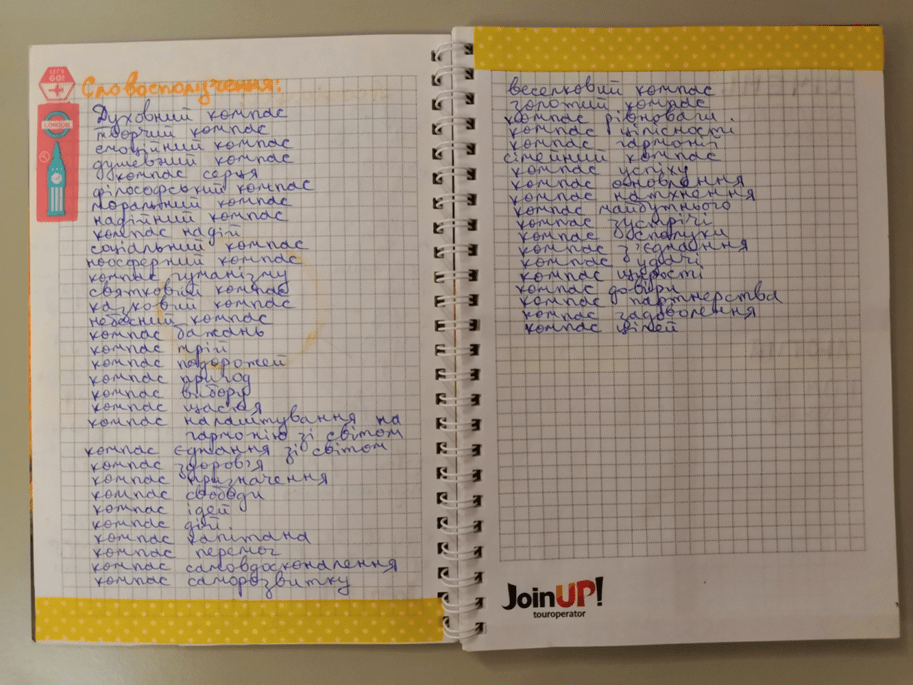 LET'S GO!
LONDON
Словосполучення:
Духовний компас
творчий компас
емоційний компас
душевний компас
компас серця
філософський компас
моральний компас
надійний компас
компас надій
соціальний компас
ноосферний компас
компас гуманізму
святковий компас
казковий компас
небесний компас
компас бажань
компас мрій
компас подорожей
компас пригод
компас вибору
компас щастя
компас налаштування на
гармонію зі світом
компас єднання зі світом
компас здоров'я
компас призначення
компас свободи
компас ідей
компас дій.
компас капітана
компас перемог
компас самовдосконалення
компас саморозвитку
веселковий компас
золотий компас
компас рівноваги.
компас цілісності
компас гармонії
сімейний компас
компас успіху
компас оновлення
компас натхнення
компас майбутнього
компас зустрічі
компас сполуки
компас з'єднання
компас удачі
компас щирості
компас довіри
компас партнерства
компас задоволення
компас цілей
JoinUP!
touroperator